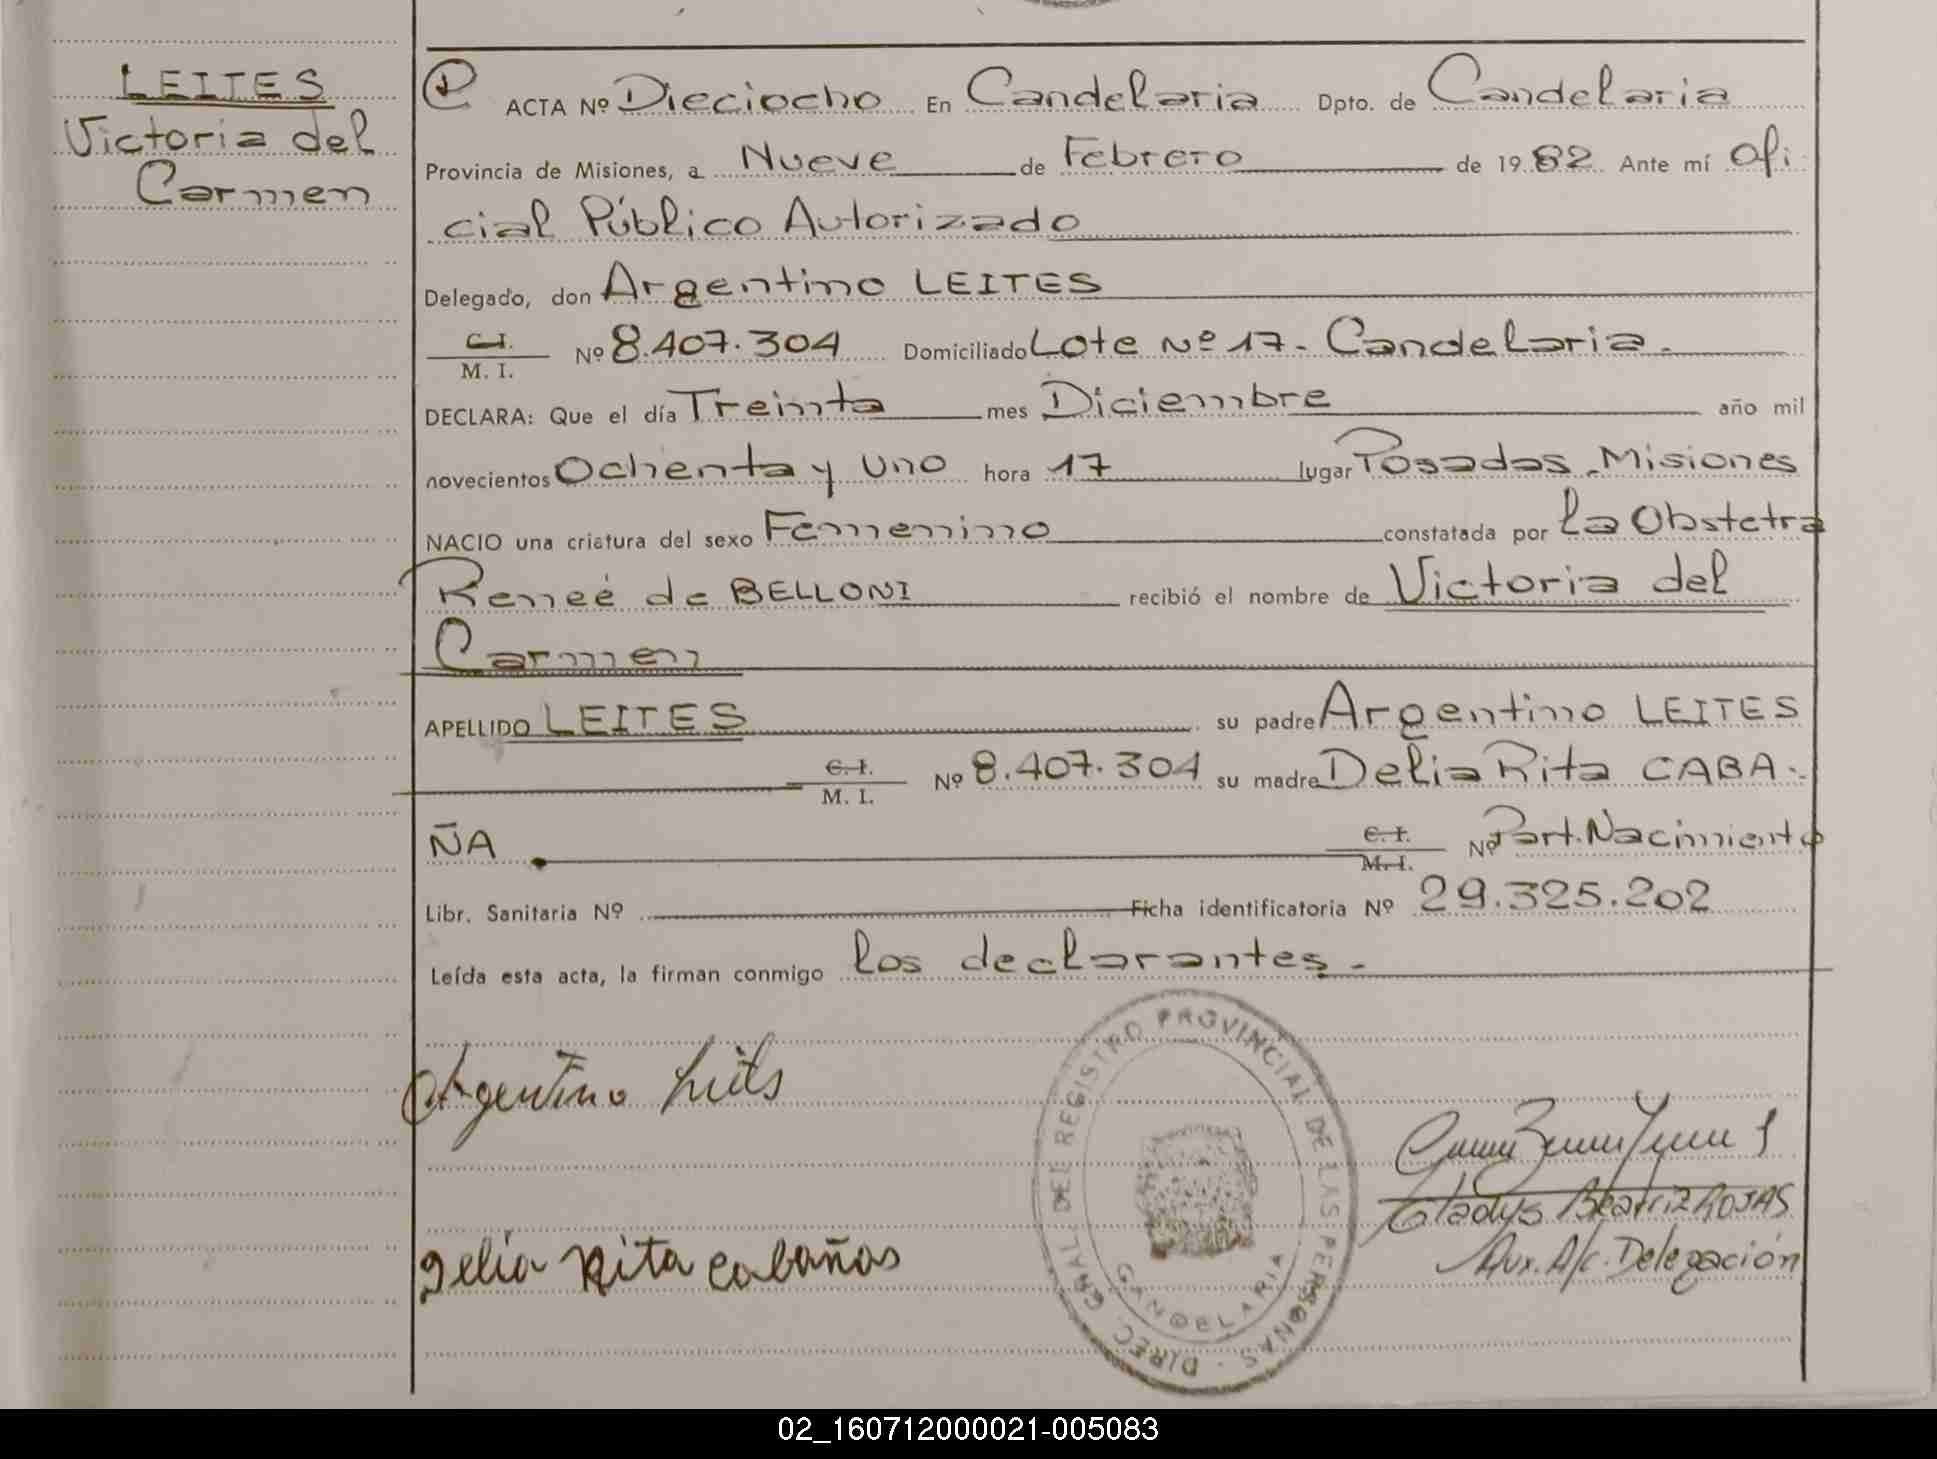 LEITES
Victoria del
Carmen
P ACTA Nº Dieciocho En Candelaria Dpto. de Candelaria
Provincia de Misiones, a Nueve de Febrero de 1982. Ante mí Ofi-
cial Público Autorizado
Delegado, don Argentino LEITES
C.I. M. I. Nº 8.407.304 Domiciliado Lote Nº 17 - Candelaria.
DECLARA: Que el día Treinta mes Diciembre año mil
novecientos Ochenta y Uno hora 17 lugar Posadas Misiones
NACIO una criatura del sexo Femenino constatada por la Obstetra
Reneé de BELLONI recibió el nombre de Victoria del
Carmen
APELLIDO LEITES su padre Argentino LEITES
C.I. M. I. Nº 8.407.304 su madre Delia Rita CABA-
ÑA C.I. M.I. Nº Part. Nacimiento
Libr. Sanitaria Nº Ficha identificatoria Nº 29.325.202
Leída esta acta, la firman conmigo los declarantes.-
Argentino Leites
Delia Rita Cabañas
DIREC. GRAL. DEL REGISTRO PROVINCIAL DE LAS PERSONAS
CANDELARIA
Gladys Beatriz ROJAS
Aux. A/c. Delegación
02_160712000021-005083